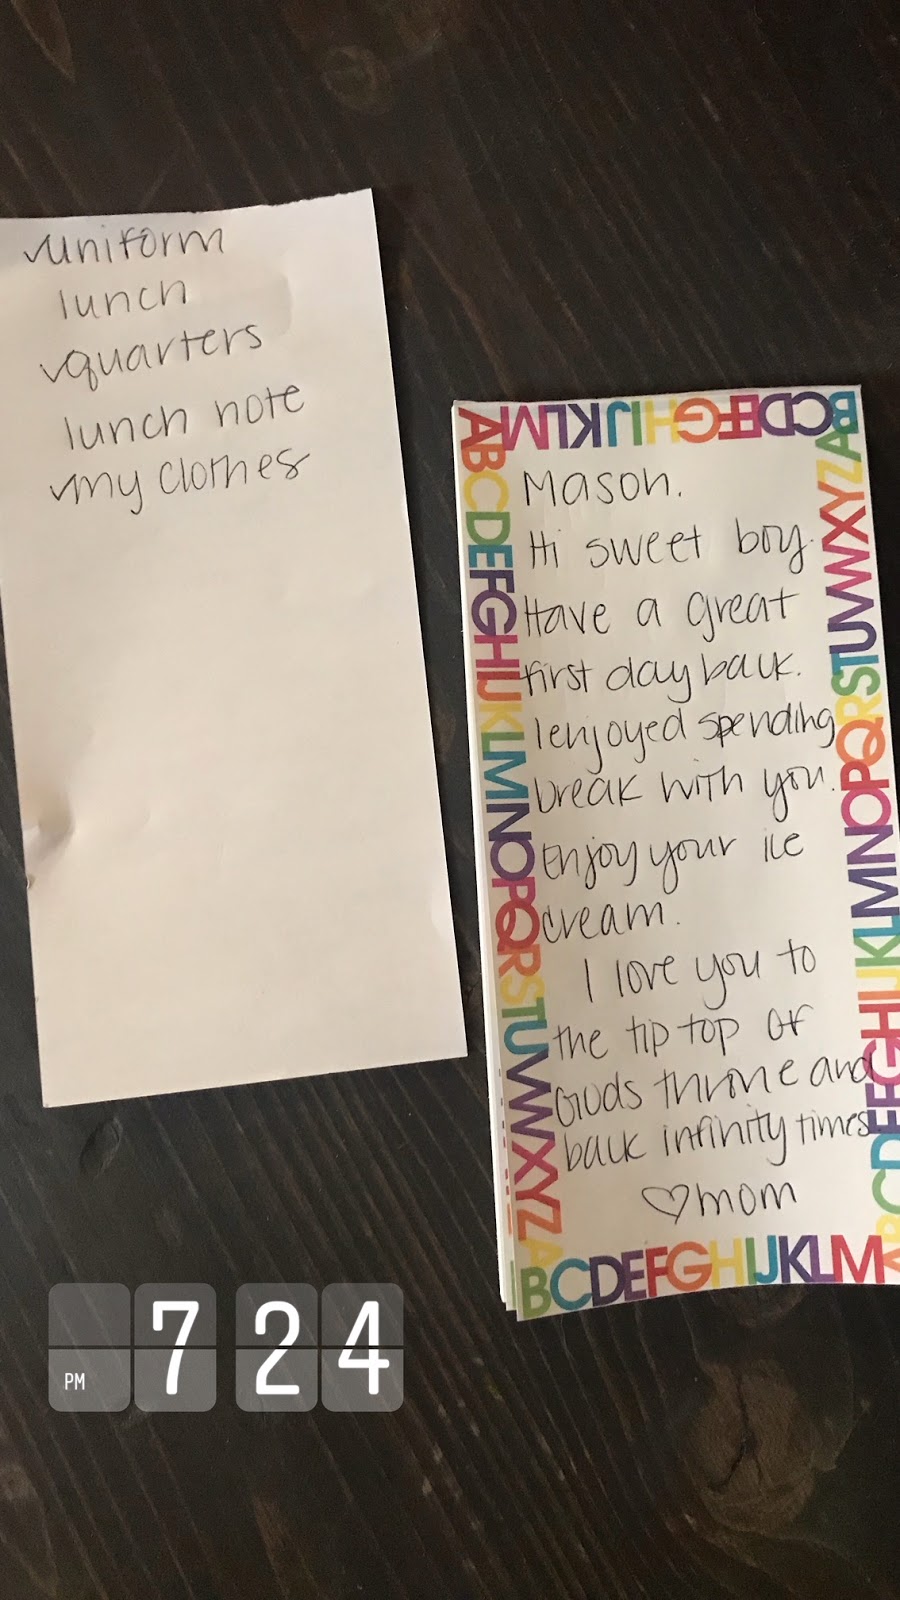 ✓uniform
lunch
✓quarters
lunch note
✓my clothes
ABCDEFGHIJKLM
ABCDEFGHIJKLMNOPQRSTUVWXYZ
Mason.
Hi sweet boy.
Have a great
first day back.
I enjoyed spending
break with you.
Enjoy your ice
cream.
I love you to
the tip top of
Gods throne and
back infinity times.
♡mom
ABCDEFGHIJKLMNOPQRSTUVWXYZ
ABCDEFGHIJKLM
PM 7 24